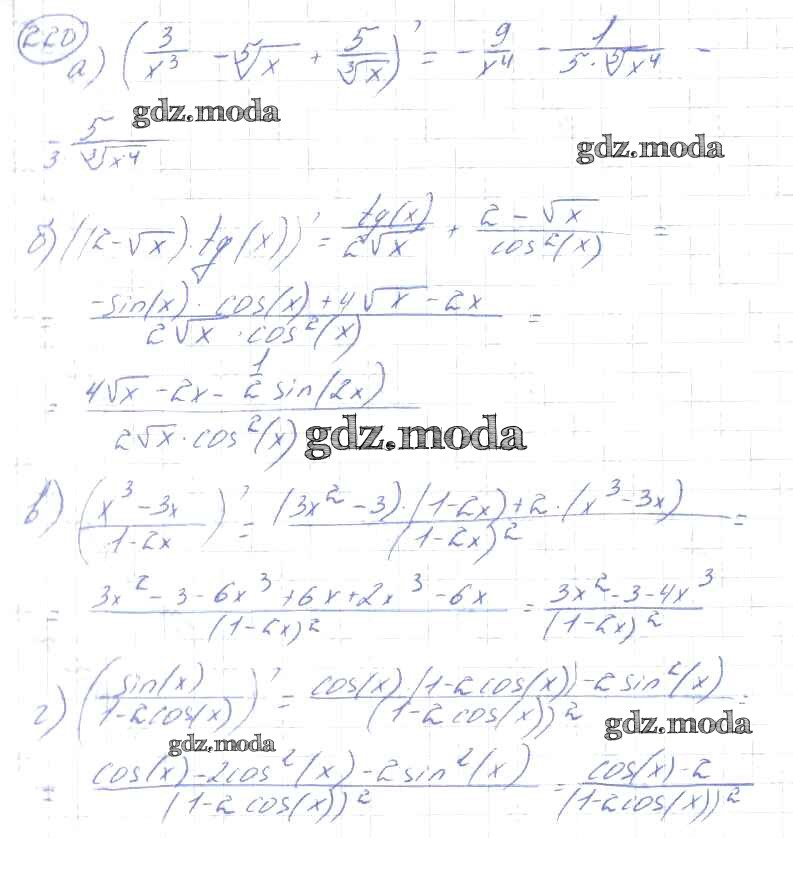 220
а) (3/x³ - ⁵√x + 5/³√x)' = - 9/x⁴ - 1/(5·⁵√x⁴) -
gdz.moda
- 5/(3 ³√x⁴)
gdz.moda
б) ((2-√x)·tg(x))' = tg(x)/(2√x) + (2-√x)/cos²(x) =
= (-sin(x)·cos(x)+4√x-2x)/(2√x·cos²(x)) =
= (4√x-2x-1/2 sin(2x))/(2√x·cos²(x))
gdz.moda
в) ((x³-3x)/(1-2x))' = ((3x²-3)·(1-2x)+2·(x³-3x))/(1-2x)² =
= (3x²-3-6x³+6x+2x³-6x)/(1-2x)² = (3x²-3-4x³)/(1-2x)²
г) (sin(x)/(1-2cos(x)))' = (cos(x)(1-2cos(x))-2sin²(x))/(1-2cos(x))² =
gdz.moda
gdz.moda
= (cos(x)-2cos²(x)-2sin²(x))/(1-2cos(x))² = (cos(x)-2)/(1-2cos(x))²